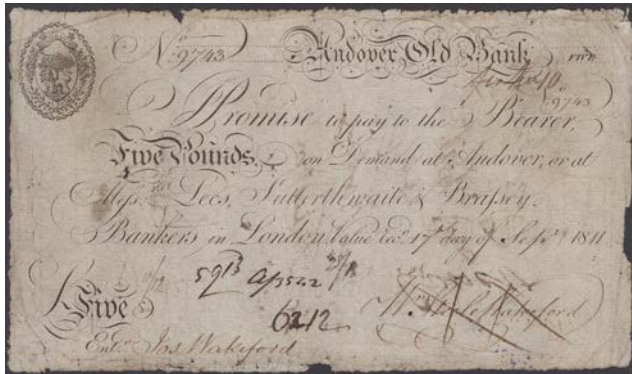 No 9743 Andover Old Bank
9743
I Promise to pay to the Bearer,
Five Pounds, on Demand at Andover, or at
Messrs. Lees, Satterthwaite & Brassey,
Bankers in London, Value recd. 17th day of Septr. 1811
£ Five
6212
Wm Steele Wakeford
Entd. Jos Wakeford